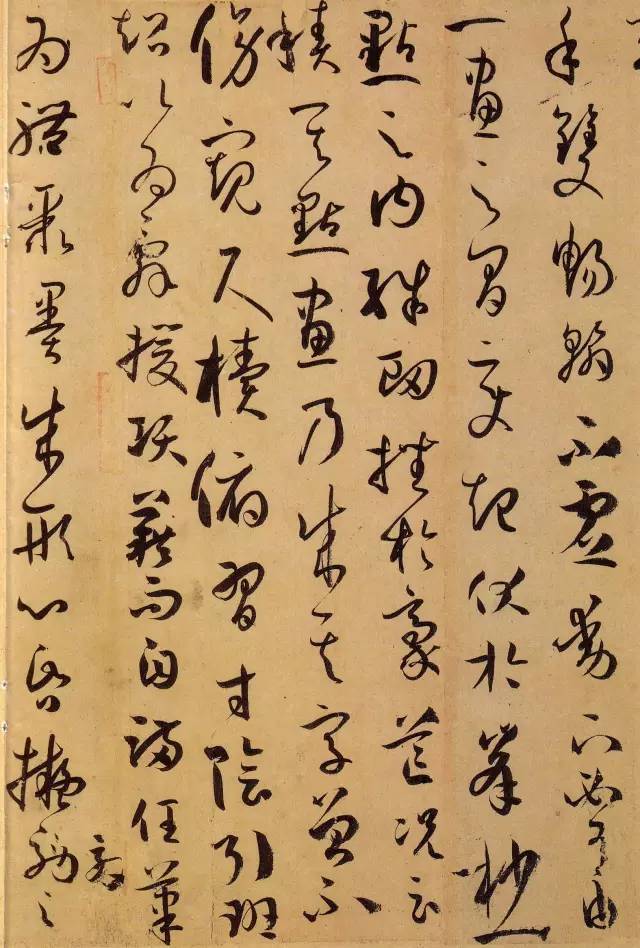 手雙暢翰不虛動下必有由
一畫之間變起伏於峯杪一
點之內殊衄挫於豪芒況云
積其點畫乃成其字曾不
傍窺尺櫝俯習寸陰引班
超以為辭援項籍而自滿任筆
為體聚墨成形心昏擬效之